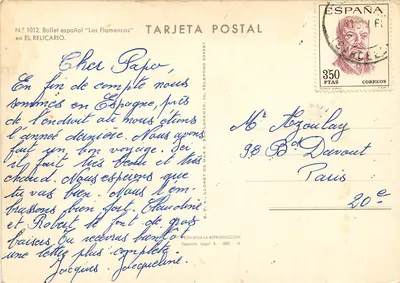 N.º 1012. Ballet español "Los Flamencos"
en EL RELICARIO.
TARJETA POSTAL
ESPAÑA
350
PTAS
CORREOS
Cher Papo,
En fin de compte nous
sommes en Espagne, près
de l'endroit où nous étions
l'année dernière. Nous avons
fait un bon voyage. Ici
il fait très beau et très
chaud. Nous espérons que
tu vas bien. Nous t'em-
brassons bien fort. Claudine
et Robert te font de gros
baisers. Tu recevras bientôt
une lettre plus complète.
Jacques. Jacqueline.
Mr Azoulay
98 Bd Davout
Paris
20e
PROHIBIDA LA REPRODUCCIÓN